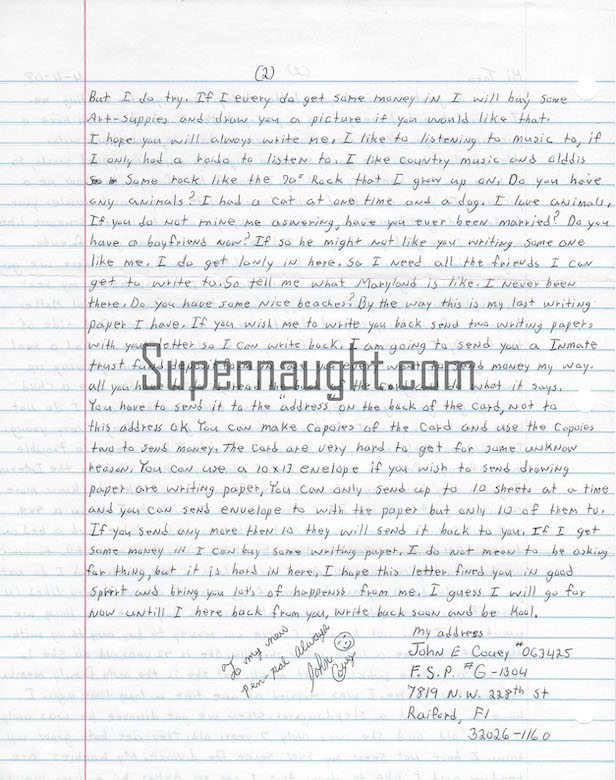 (2)
But I do try. If I every do get some money in I will buy some
Art-suppies and draw you a picture if you would like that.
I hope you will always write me. I like to listening to music to, if
I only had a roido to listen to. I like country music and olddis
Some rock like the 70s Rock that I grow up on. Do you have
any animals? I had a cat at one time and a dog. I love animals,
If you do not mine me aswering, have you ever been married? Do you
have a boyfriend now? If so he might not like you writing some one
like me. I do get lonly in here. So I need all the friends I can
get to write to. So tell me what Maryland is like. I never been
there. Do you have some nice beaches? By the way this is my last writing
paper I have. If you wish me to write you back send two writing papers
with you letter so I can write back. I am going to send you a Inmate
trust fund deposit send money my way.
Supernaught.com
all you have what it says.
You have to send it to the "address on the back of the card, not to
this address ok You can make copoies of the card and use the copoies
two to send money. The card are very hard to get for some unknow
reason. You can use a 10x13 enelope if you wish to send drawing
paper are writing paper, You can only send up to 10 sheets at a time
and you can send envelope to with the paper but only 10 of them to.
If you send any more then 10 they will send it back to you. If I get
some money in I can buy some writing paper. I do not mean to be asking
for thing, but it is hard in here. I hope this letter fined you in good
Spirit and bring you lots of happenss from me. I guess I will go for
now untill I here back from you, write back soon and be Kool.
To my new
pen-pal always
John
Couey
my address
John E Couey #063425
F.S.P. #G-1304
7819 N.W. 228th St
Raiford, Fl
32026-1160